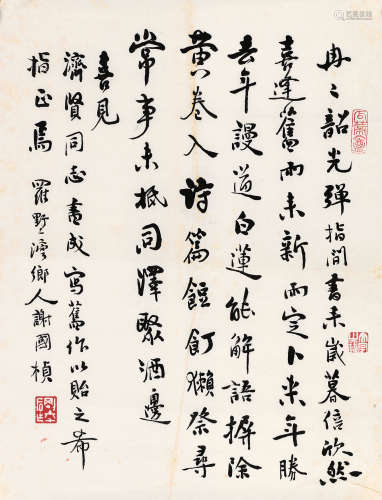 冉々韶光弹指間書來歲暮信欣然
喜逢舊雨來新雨定卜来年勝
去年謾道白蓮能解語摒除
黄卷入詩篇饾飣獺祭尋
常事未抵同澤聚酒邊
喜見
濟賢同志畫成寫舊作以貽之希
指正焉 羅墅灣鄉人謝國楨